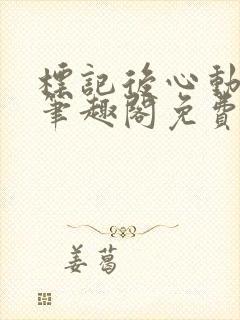 標記後心動
筆趣閣免費
姜蔔